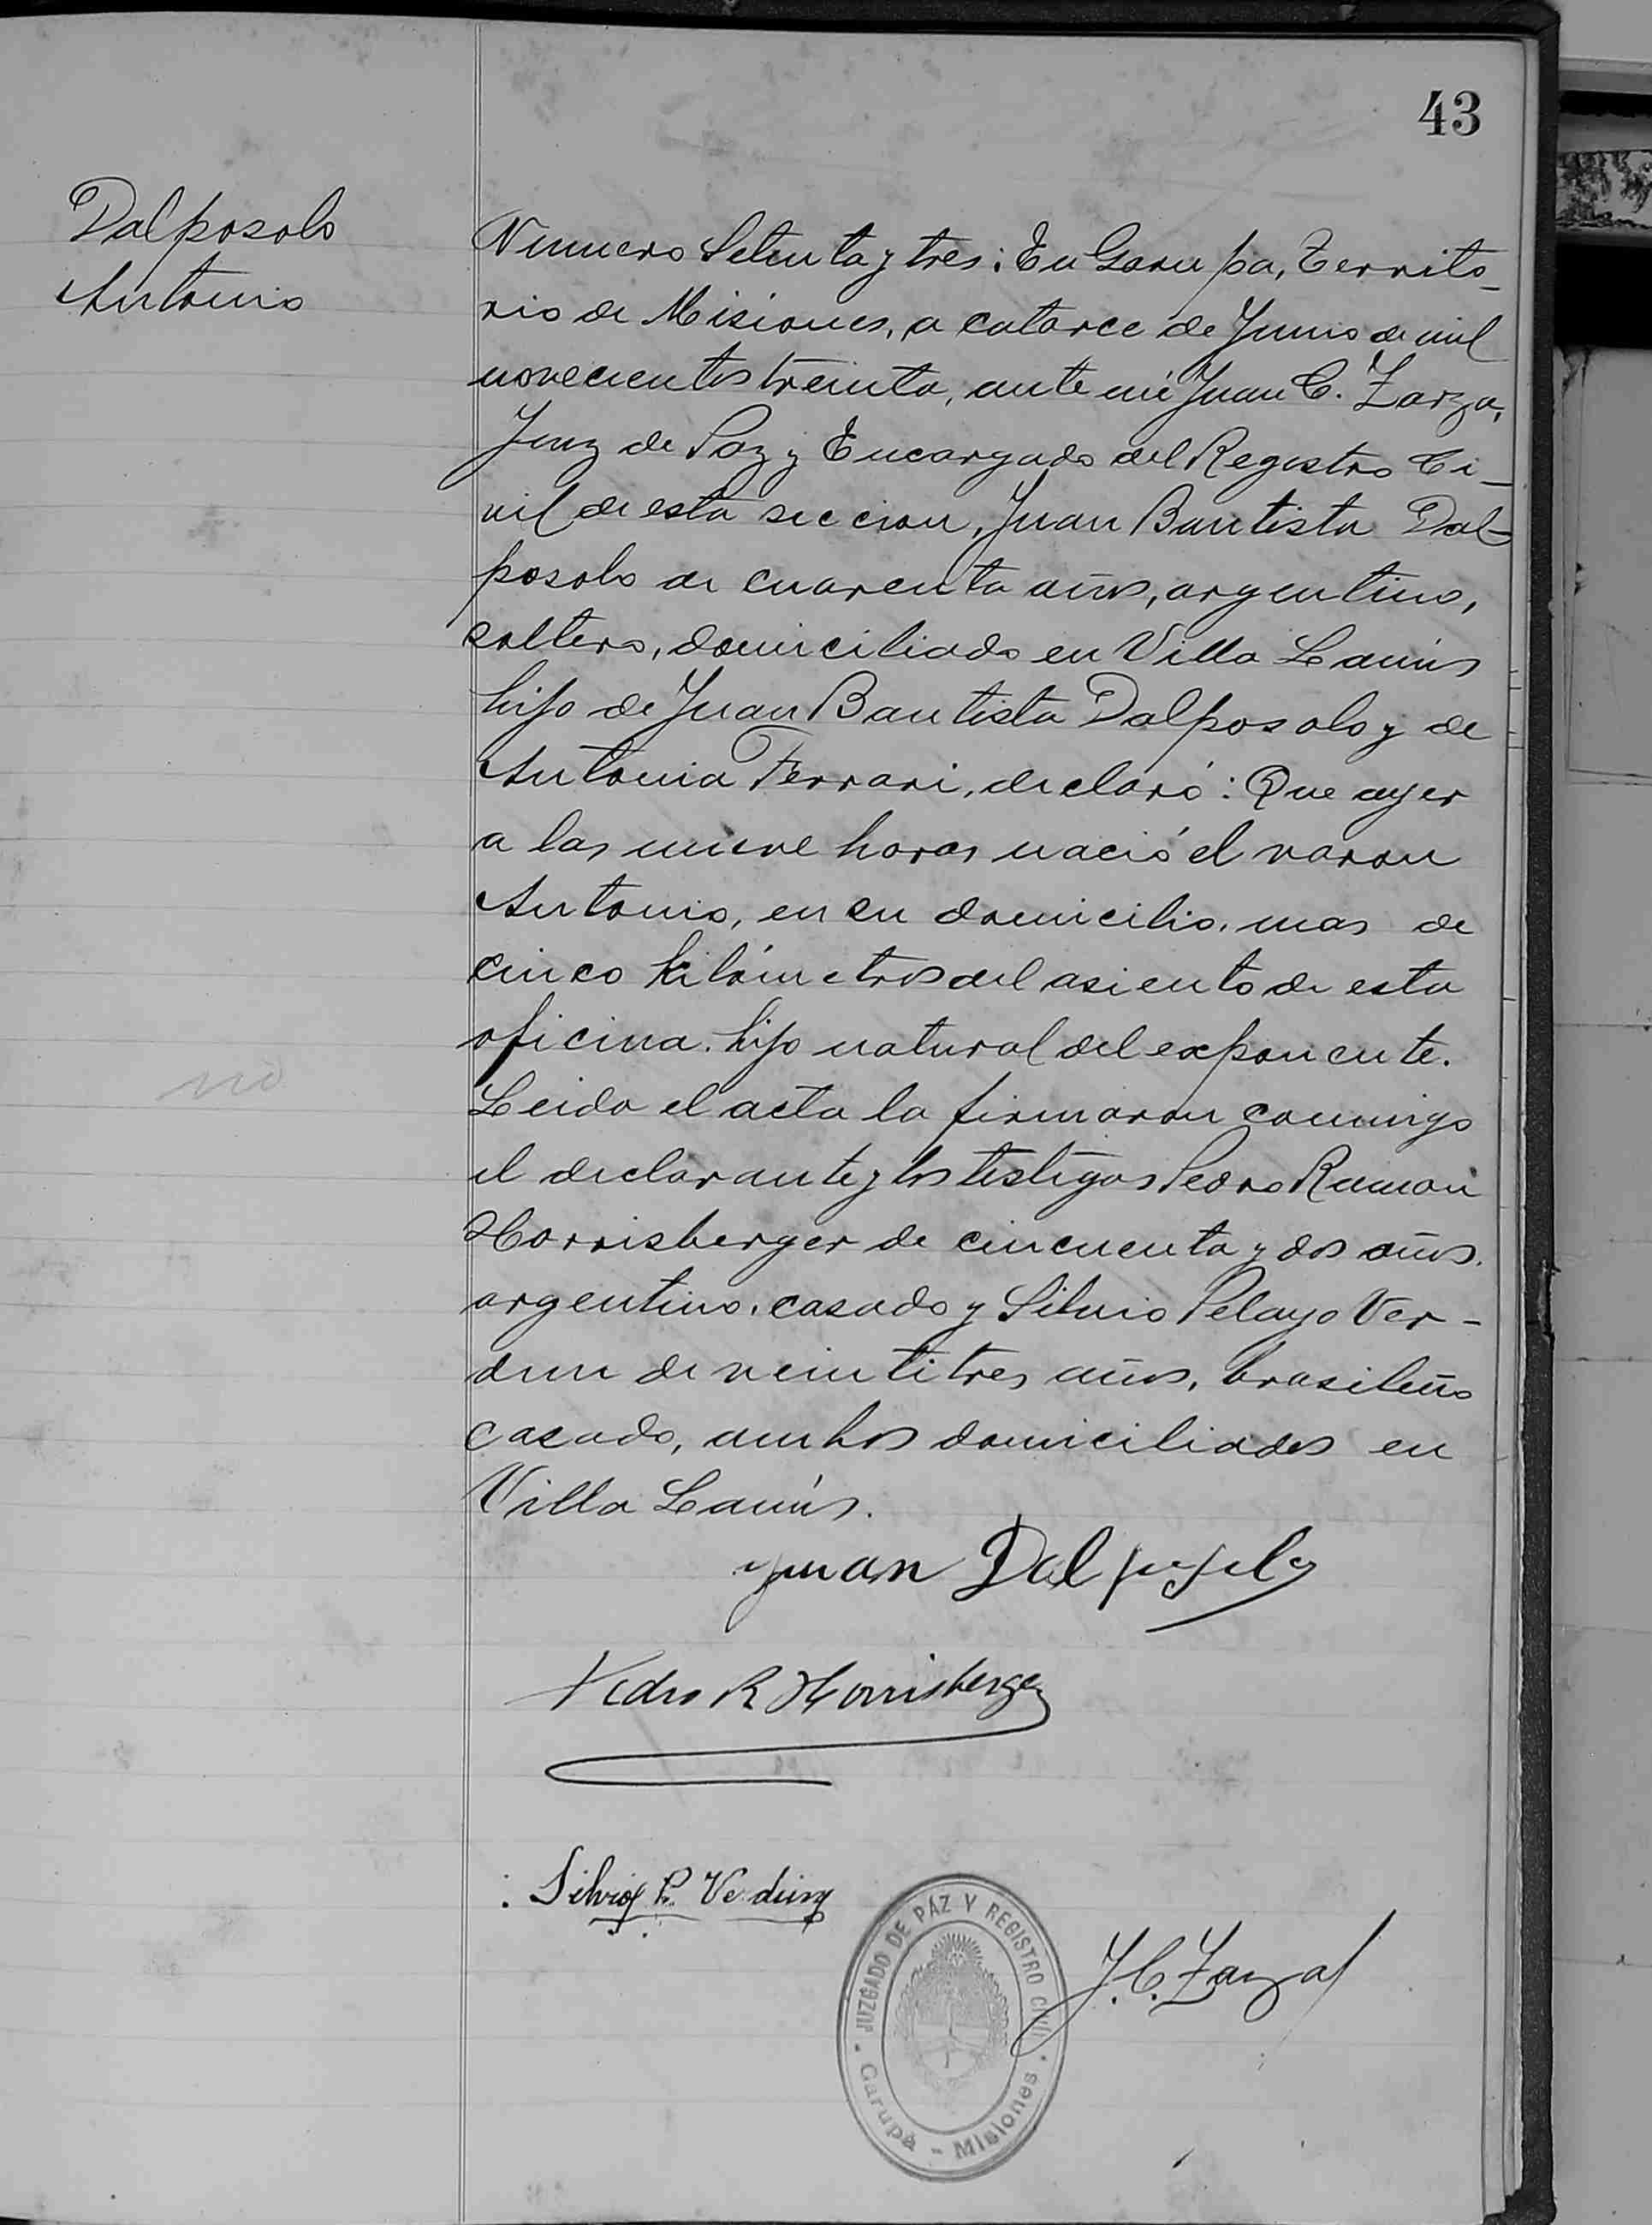 43
Dalposolo
Antonio
Numero Setenta y tres: En Garupa, Territo-
rio de Misiones, a catorce de Junio de mil
novecientos treinta, ante mi Juan C. Zarza,
Juez de Paz y Encargado del Registro Ci-
vil de esta seccion, Juan Bautista Dal-
posolo de cuarenta años, argentino,
soltero, domiciliado en Villa Lanús
hijo de Juan Bautista Dalposolo y de
Antonia Ferrari, declaró: Que ayer
a las nueve horas nació el varon
Antonio, en su domicilio, mas de
cinco kilómetros del asiento de esta
oficina. hijo natural del exponente.
Leida el acta la firmaron conmigo
el declarante y los testigos Pedro Ramon
Horrisberger de cincuenta y dos años,
argentino, casado y Silvio Pelayo Ver-
dun de veintitres años, brasileño
casado, ambos domiciliados en
Villa Lanús.
no
Juan Dalposolo
Pedro R Horrisberger
Silvio P. Verdun
J. C. Zarza
JUZGADO DE PAZ Y REGISTRO CIVIL
Garupá - Misiones